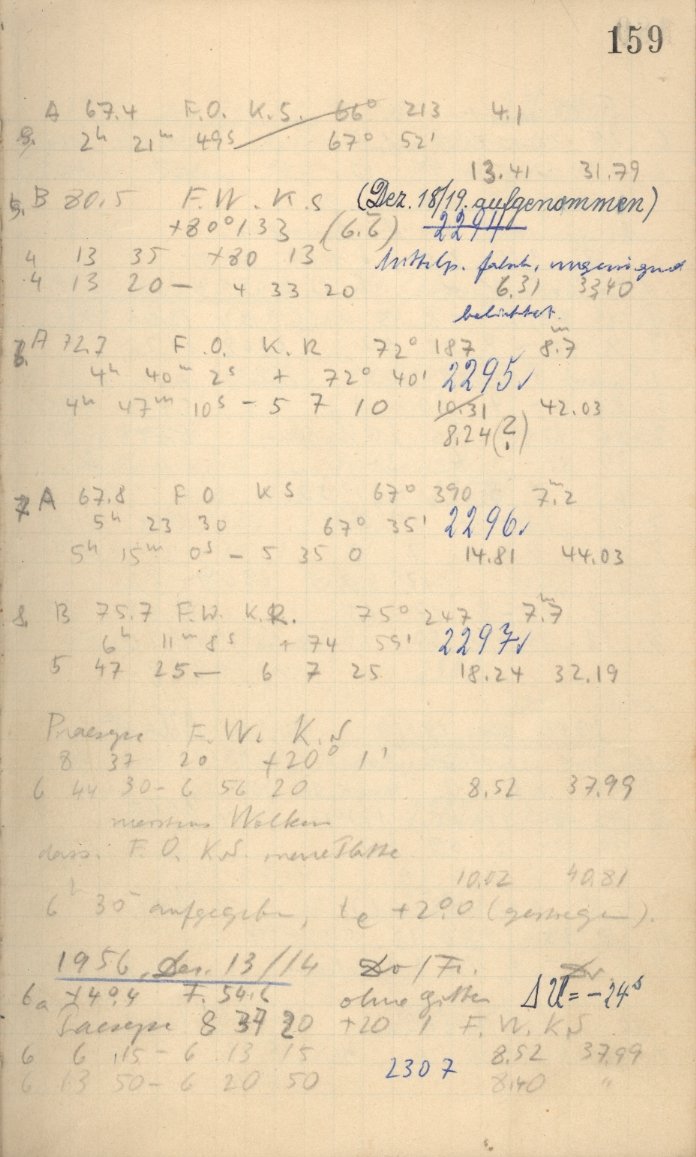 159
A 67.4 F.O. K.S. 66° 213 4.1
2h 21m 49s 67° 52'
13.41 31.79
5. B 80.5 F.W. K.S (Dez. 18/19. aufgenommen)
+80° 133 (6.6) 2294
4 13 35 +80 13 Mittelp. falsch, ungenügend
4 13 20 – 4 33 20 6.31 33.40
belichtet.
6. A 72.7 F.O. K.R 72° 187 8.m7
4h 40m 2s + 72° 40' 2295✓
4h 47m 10s – 5 7 10 10.31 42.03
8.24(?)
7. A 67.8 F O K S 67° 390 7.m2
5h 23 30 67° 35' 2296✓
5h 15m 0s – 5 35 0 14.81 44.03
8. B 75.7 F.W. K.R. 75° 247 7.m7
6h 11m 8s + 74 59' 2297✓
5 47 25 – 6 7 25 18.24 32.19
Praesepe F.W. K.S
8 37 20 +20° 1'
6 44 30 – 6 56 20 8.52 37.99
Wolken
dass. F.O. K.S. neue Platte
10.02 40.81
6h 30 aufgegeben, te +2°.0 (gestiegen).
1956 Dez. 13/14 Do/Fr.
6a +4°.4 F. 54.6 ohne Gitter ΔU = –24s
Praesepe 8 37 20 +20 1 F.W. K.S
6 6 15 – 6 13 15 8.52 37.99
2307
6 13 50 – 6 20 50 8.40 "